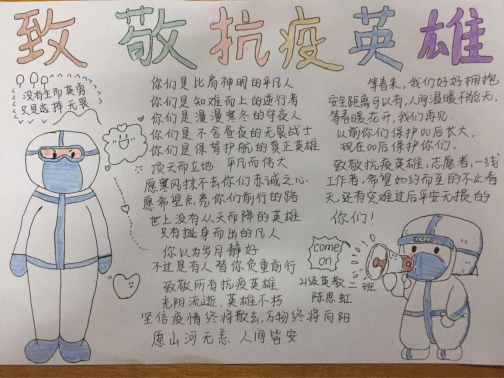 致敬抗疫英雄
没有生而英勇
只是选择无畏
你们是比肩神明的平凡人
你们是知难而上的逆行者
你们是漫漫寒冬的守夜人
你们是不舍昼夜的无畏战士
你们是保驾护航的真正英雄
顶天而立地 平凡而伟大
愿寒风抹不去你们赤诚之心
愿希望点亮你们前行的路
世上没有从天而降的英雄
只有挺身而出的凡人
你以为岁月静好
不过是有人替你负重前行
致敬所有抗疫英雄
光阴流逝,英雄不朽
坚信疫情终将散去,万物终将向阳
愿山河无恙 人间皆安
等春来,我们好好拥抱
安全距离可以有,人间温暖不能无,
等春暖花开,我们再见.
以前你们保护00后长大,
现在00后保护你们.
致敬抗疫英雄、志愿者,一线
工作者,希望如约而至的不止春
天,还有灾难过后平安无损的
你们!
come
on
21级英教二班
陈思虹